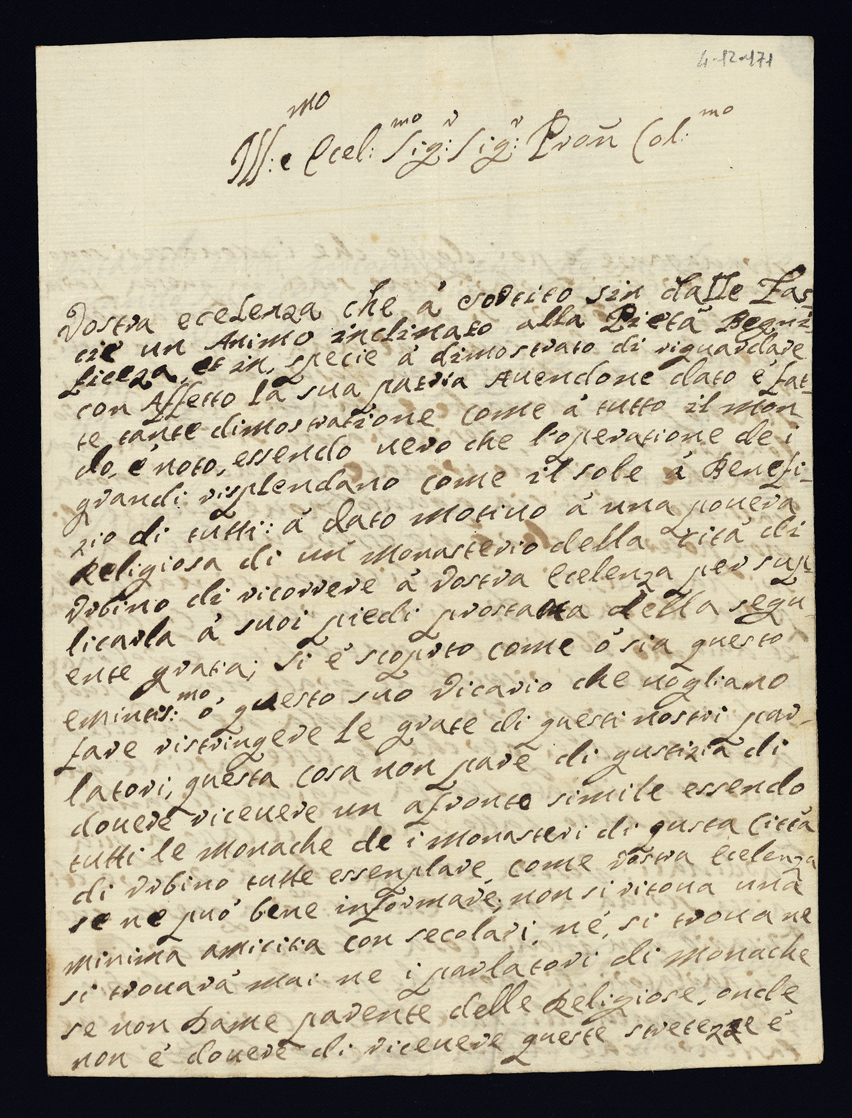 4-12-171
Ill:mo e Ecel:mo Sig:r Sig:r Pron Col:mo
Vostra ecelenza che à sortito sin dalle Fas-
cie un Animo inclinato alla Pietà Begni-
ficeza, et in specie à dimostrato di riguardare
con Affetto la sua patria Auendone dato è fat-
te tante dimostratione come à tutto il mon
do, è noto, essendo uero che l'operatione de i
grandi risplendano come il sole à Benefi-
zio di tutti: à dato motiuo à una pouera
Religiosa di un Monasterio della cità di
Vrbino di ricorrere à Vostra Ecelenza per sup-
licarla à suoi piedi prostrata della segu-
ente gratia; si è scoprto come ò sia questo
eminētis:mo ò questo suo Vicario che uogliano
fare ristringere le grate di questi nostri par-
latori, questa cosa non pare di gustizia di
douere riceuere un afronte simile essendo
tutti le Monache de i Monasteri di qusta Città
di Vrbino tutte essenplare, come Vostra Ecelenza
se ne può bene informare, non si ritoua una
minima amicitia con secolari, nè, si troua ne
si trouarà mai ne i parlatori di Monache
se non Dame parente delle Religiose, onde
non è douere di riceuere queste stretezze è